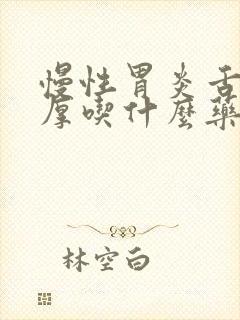 慢性胃炎舌
厚喫什麼藥
林空白